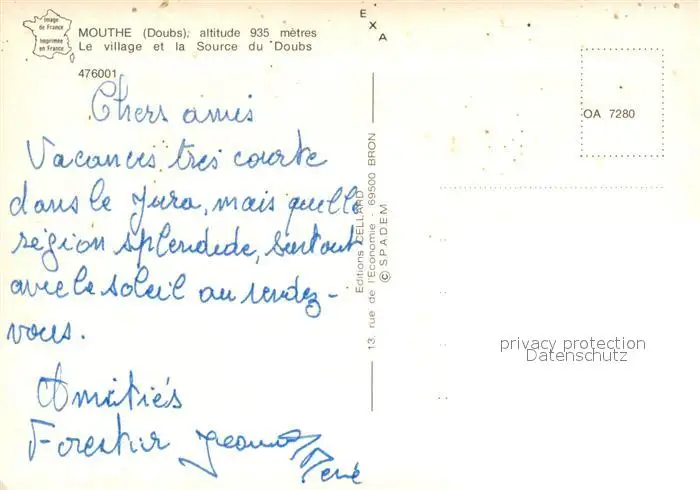 Image
de France
Imprimée
en France
MOUTHE (Doubs), altitude 935 mètres
Le village et la Source du Doubs
476001
EXA
Chers amis
Vacances très courte
dans le Jura, mais quelle
région splendide, surtout
avec le soleil au rendez-
vous.
Amitiés
Forestier Jeanne
René
Editions CELLARD
13, rue de l'Economie - 69500 BRON
© SPADEM
OA 7280
privacy protection
Datenschutz